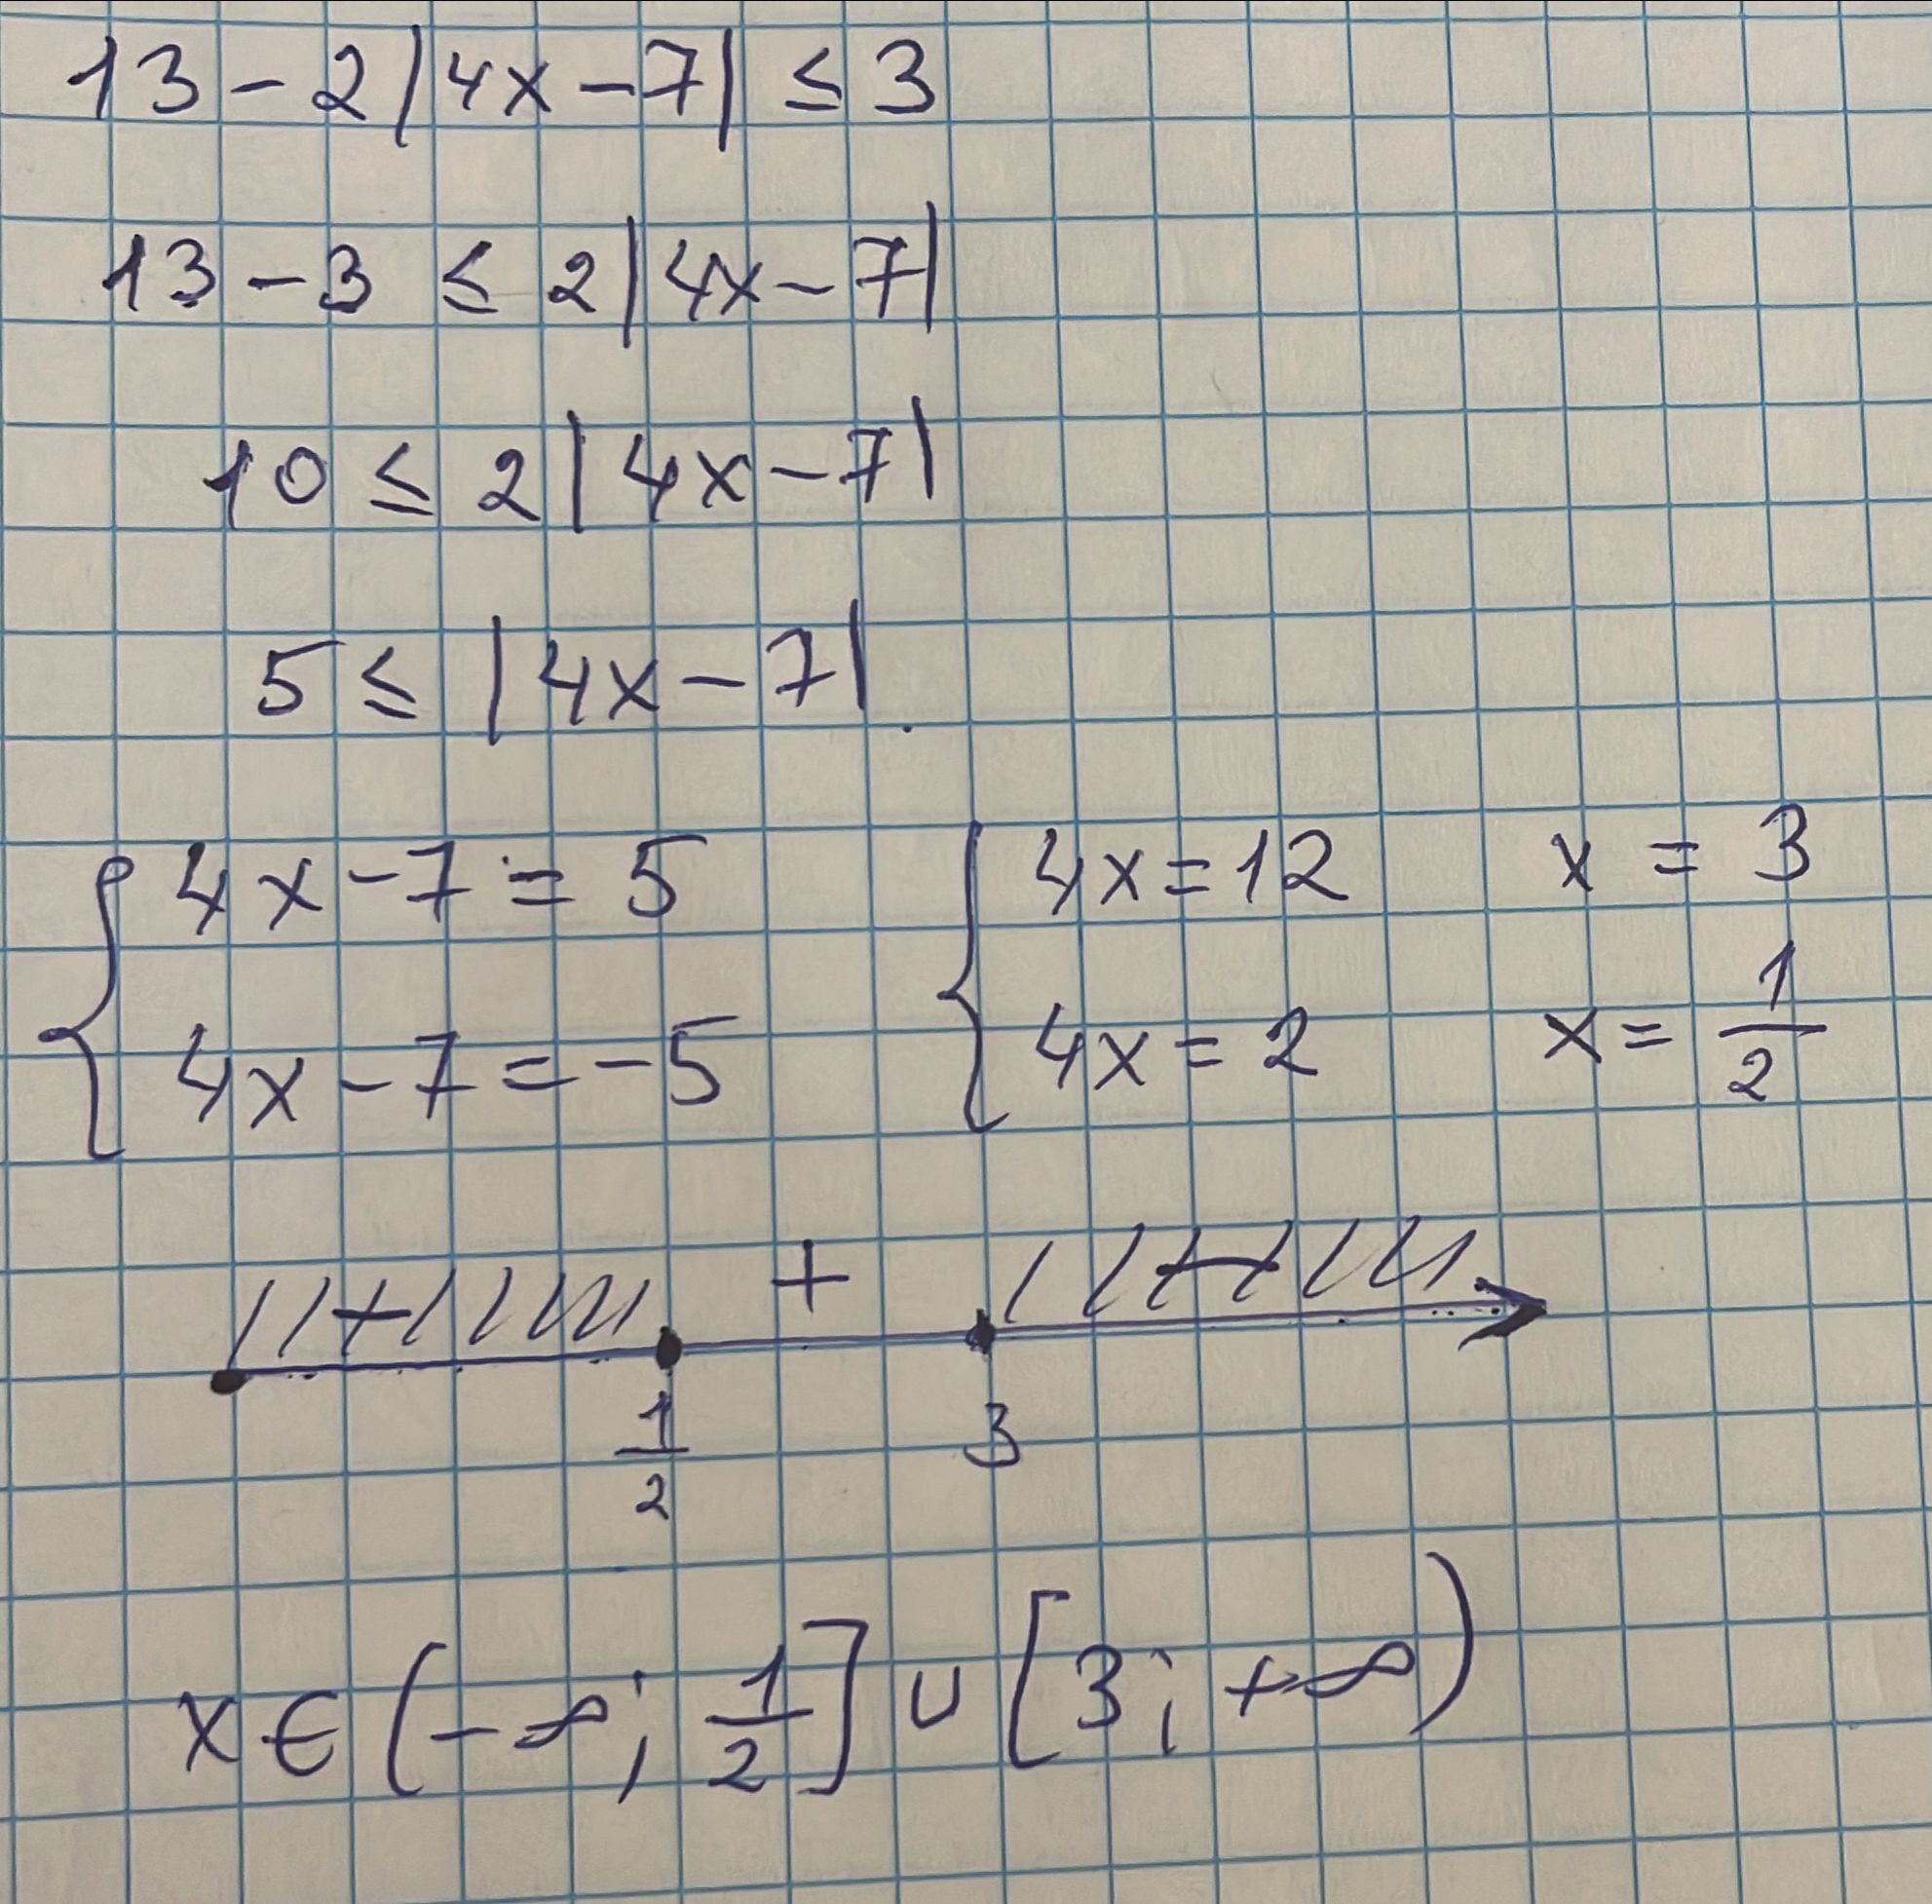 13 - 2|4x - 7| ≤ 3
13 - 3 ≤ 2|4x - 7|
10 ≤ 2|4x - 7|
5 ≤ |4x - 7|
{ 4x - 7 = 5 { 4x = 12 x = 3
4x - 7 = -5 4x = 2 x = 1/2
+ + +
1/2 3
x ∈ (-∞; 1/2] ∪ [3; +∞)